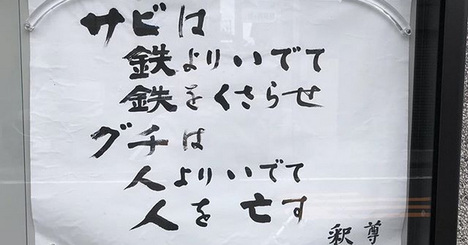 サビは
鉄よりいでて
鉄をくさらせ
グチは
人よりいでて
人を亡す
釈尊